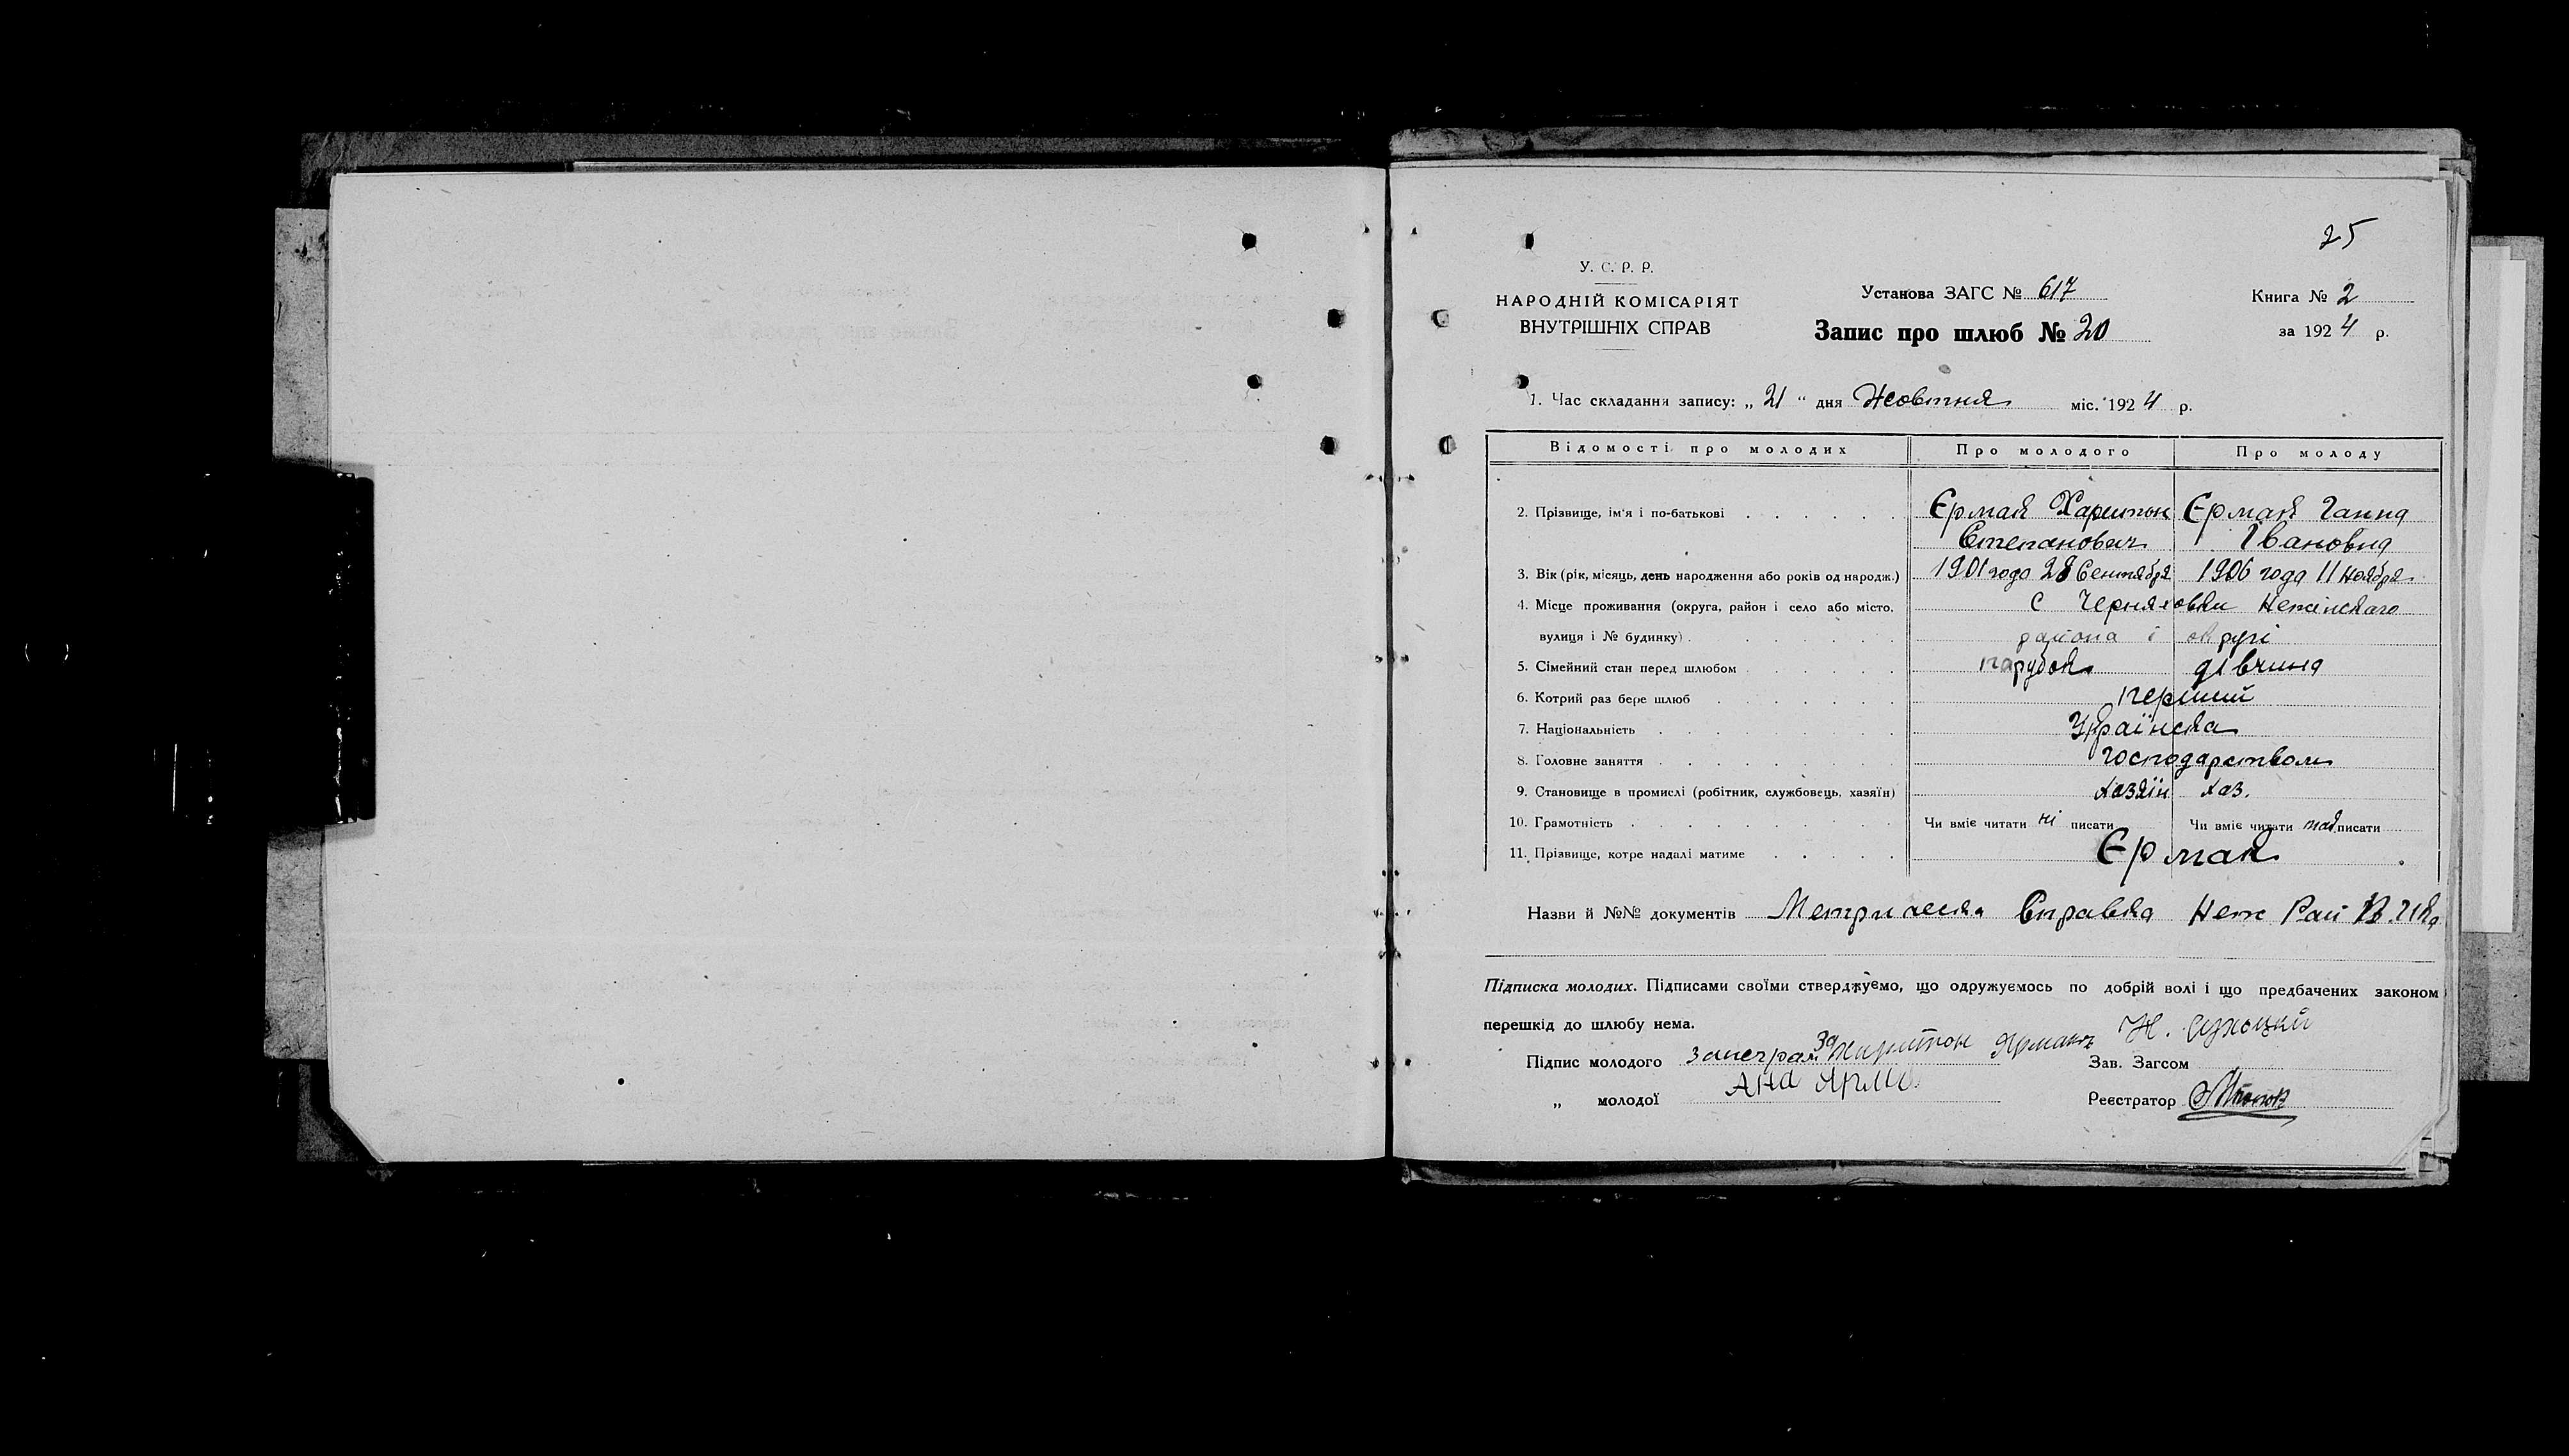 25
У. С. Р. Р.
НАРОДНІЙ КОМІСАРІЯТ
ВНУТРІШНІХ СПРАВ
Установа ЗАГС № 617
Запис про шлюб № 20
Книга № 2
за 1924 р.
1. Час складання запису: „ 21 “ дня Жовтня міс. 1924 р.
Відомості про молодих Про молодого Про молоду
2. Прізвище, ім'я і по-батькові Єрмак Харитон Єрмак Ганна
Степанович Івановна
3. Вік (рік, місяць, день народження або років од народж.) 1901 года 28 Сентября 1906 года 11 Ноября
4. Місце проживання (округа, район і село або місто, с Черняховки Неженскаго
вулиця і № будинку) района і округі
5. Сімейний стан перед шлюбом парубок дівчина
6. Котрий раз бере шлюб перший
7. Національність Українска
8. Головне заняття Господарством
9. Становище в промислі (робітник, службовець, хазяїн) хазяїн хаз.
10. Грамотність Чи вміє читати ні писати Чи вміє читати так писати
11. Прізвище, котре надалі матиме Єрмак
Назви й №№ документів Справка Неж Рай
Підписка молодих. Підписами своїми стверджуємо, що одружуємось по добрій волі і що предбачених законом
перешкід до шлюбу нема.
Підпис молодого За Харитон Ярмак Зав. Загсом
„ молодої Ана Реєстратор